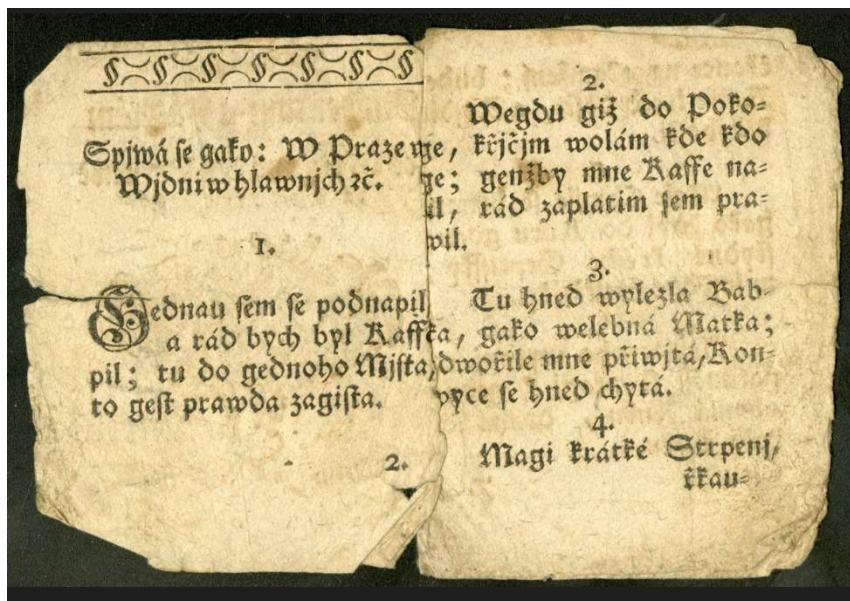 Spjwá ſe gako: W Praze
Wjdni w hlawnjch ꝛč.
1.
Gednau ſem ſe podnapil
a rád bych byl Kaff
pil; tu do gednoho Mjſta,
to geſt prawda zagiſta.
2.
2.
Wegdu giž do Poko⸗
ge, křičjm wolám kde kdo
ge; genžby mne Kaffe na⸗
il, rád zaplatim ſem pra⸗
wil.
3.
Tu hned wylezla Bab⸗
ka, gako welebná Matka;
dwořile mne přiwjtá, Kon⸗
wyce ſe hned chytá.
4.
Magi krátké Strpenj,
řkau⸗